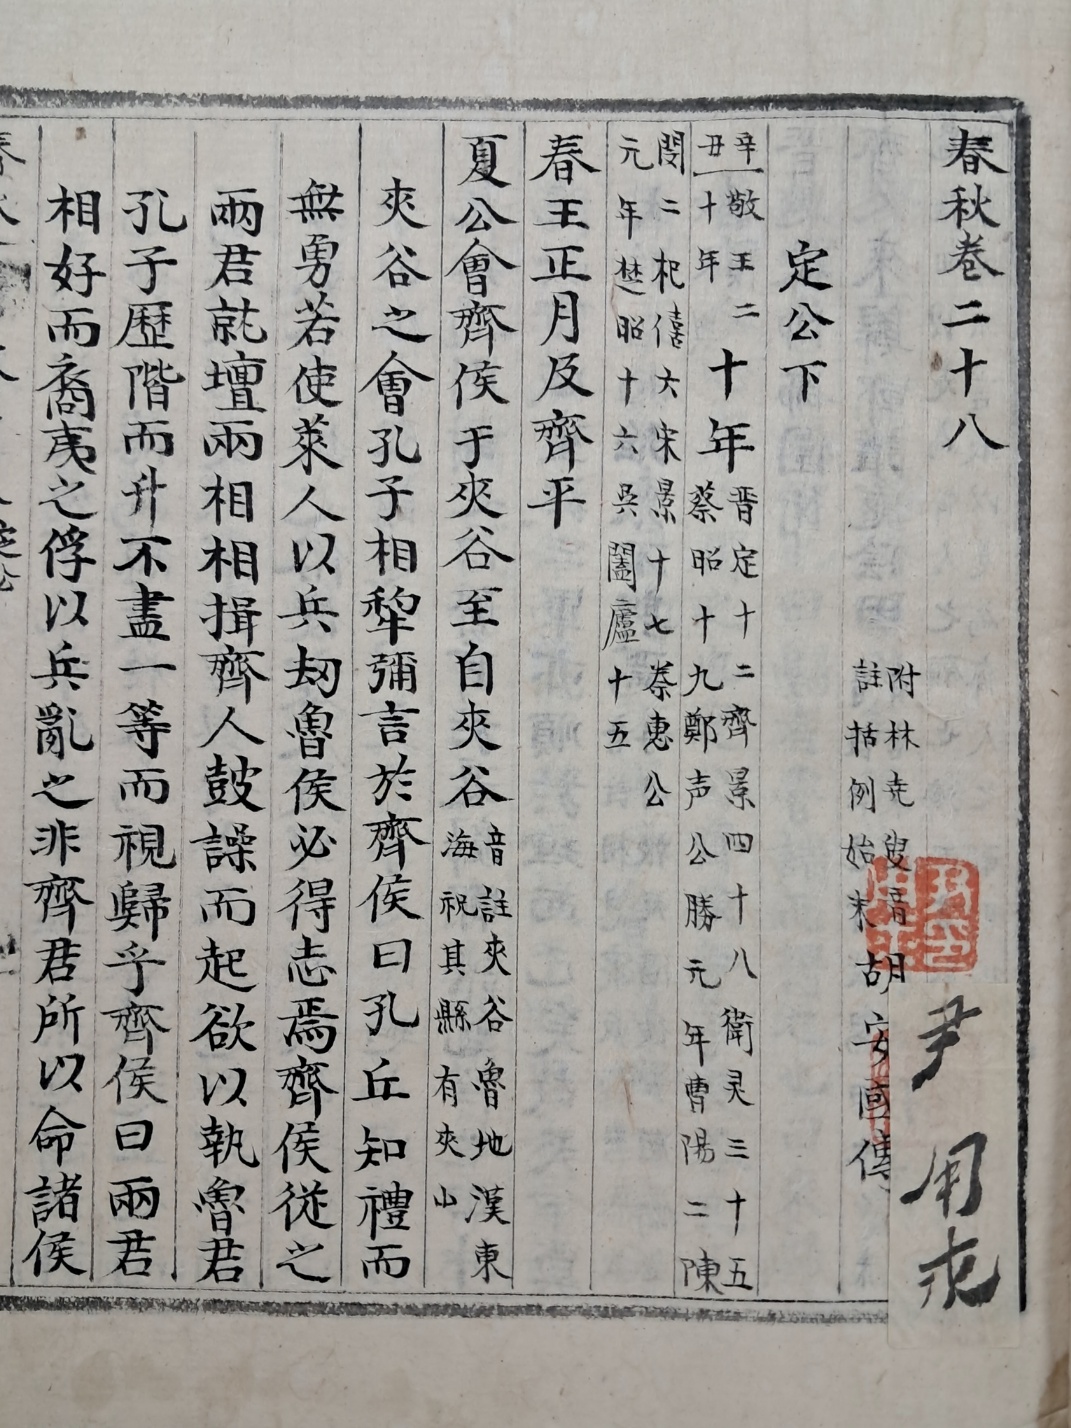 春秋卷二十八
附林尭叟音
註括例始末
胡安國傳
定公下
辛丑
敬王二
十年
十年
晋定十二齊景四十八衛灵三十五
蔡昭十九鄭声公勝元年曹陽二陳
閔二杞僖六宋景十七秦惠公
元年楚昭十六吳闔廬十五
春王正月及齊平
夏公會齊侯于夾谷至自夾谷
音註夾谷魯地漢東
海祝其縣有夾山
夾谷之會孔子相犂彌言於齊侯曰孔丘知禮而
無勇若使萊人以兵刼魯侯必得志焉齊侯從之
兩君就壇兩相相揖齊人鼓譟而起欲以執魯君
孔子歷階而升不盡一等而視歸乎齊侯曰兩君
相好而裔夷之俘以兵亂之非齊君所以命諸侯
尹用